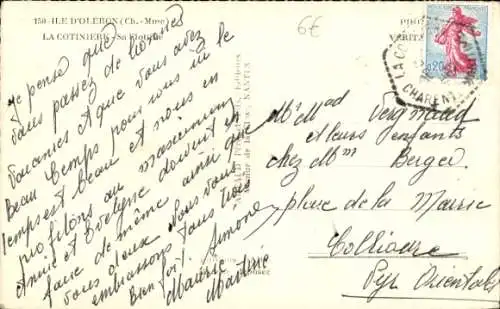 150 - ILE D'OLERON (Ch.-Mme)
LA COTINIERE - Sa Flottille
6€
Je pense que
vous passez de bonnes
vacances et que vous avez
beau temps pour nous ici le
temps est beau et nous en
profitons au maximum
Annie et Evelyne doivent en
faire de même ainsi que
vous deux. Nous vous
embrassons tous trois
Bien fort. Simone
Maurice
Martine
Mr Mad
et leurs enfants
chez Mm Berger
place de la Mairie
Collioure
Pyr Orientales
LA CO
CHARENTE
0,20